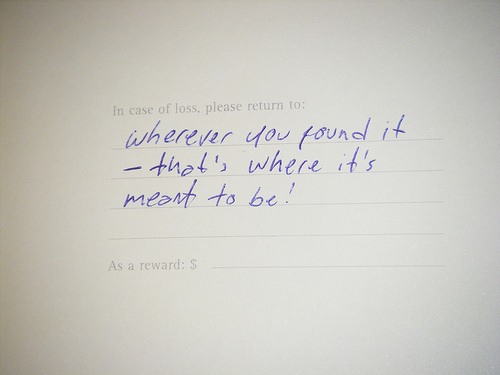 In case of loss, please return to:
wherever you found it
– that's where it's
meant to be!
As a reward: $